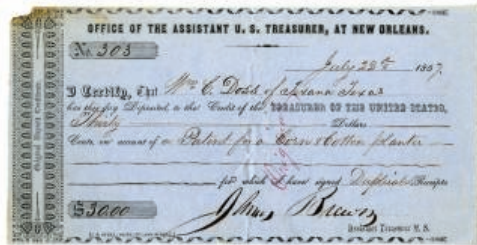 OFFICE OF THE ASSISTANT U. S. TREASURER, AT NEW ORLEANS.
No. 303
July 28th 1857
I Certify, That Wm C. Dodd of Texana Texas
has this day Deposited, to the Credit of the TREASURER OF THE UNITED STATES,
Thirty Dollars
Cents, on account of a Patent for a Corn & Cotton planter
for which I have signed Duplicate Receipts
$30.00
Assistant Treasurer U. S.